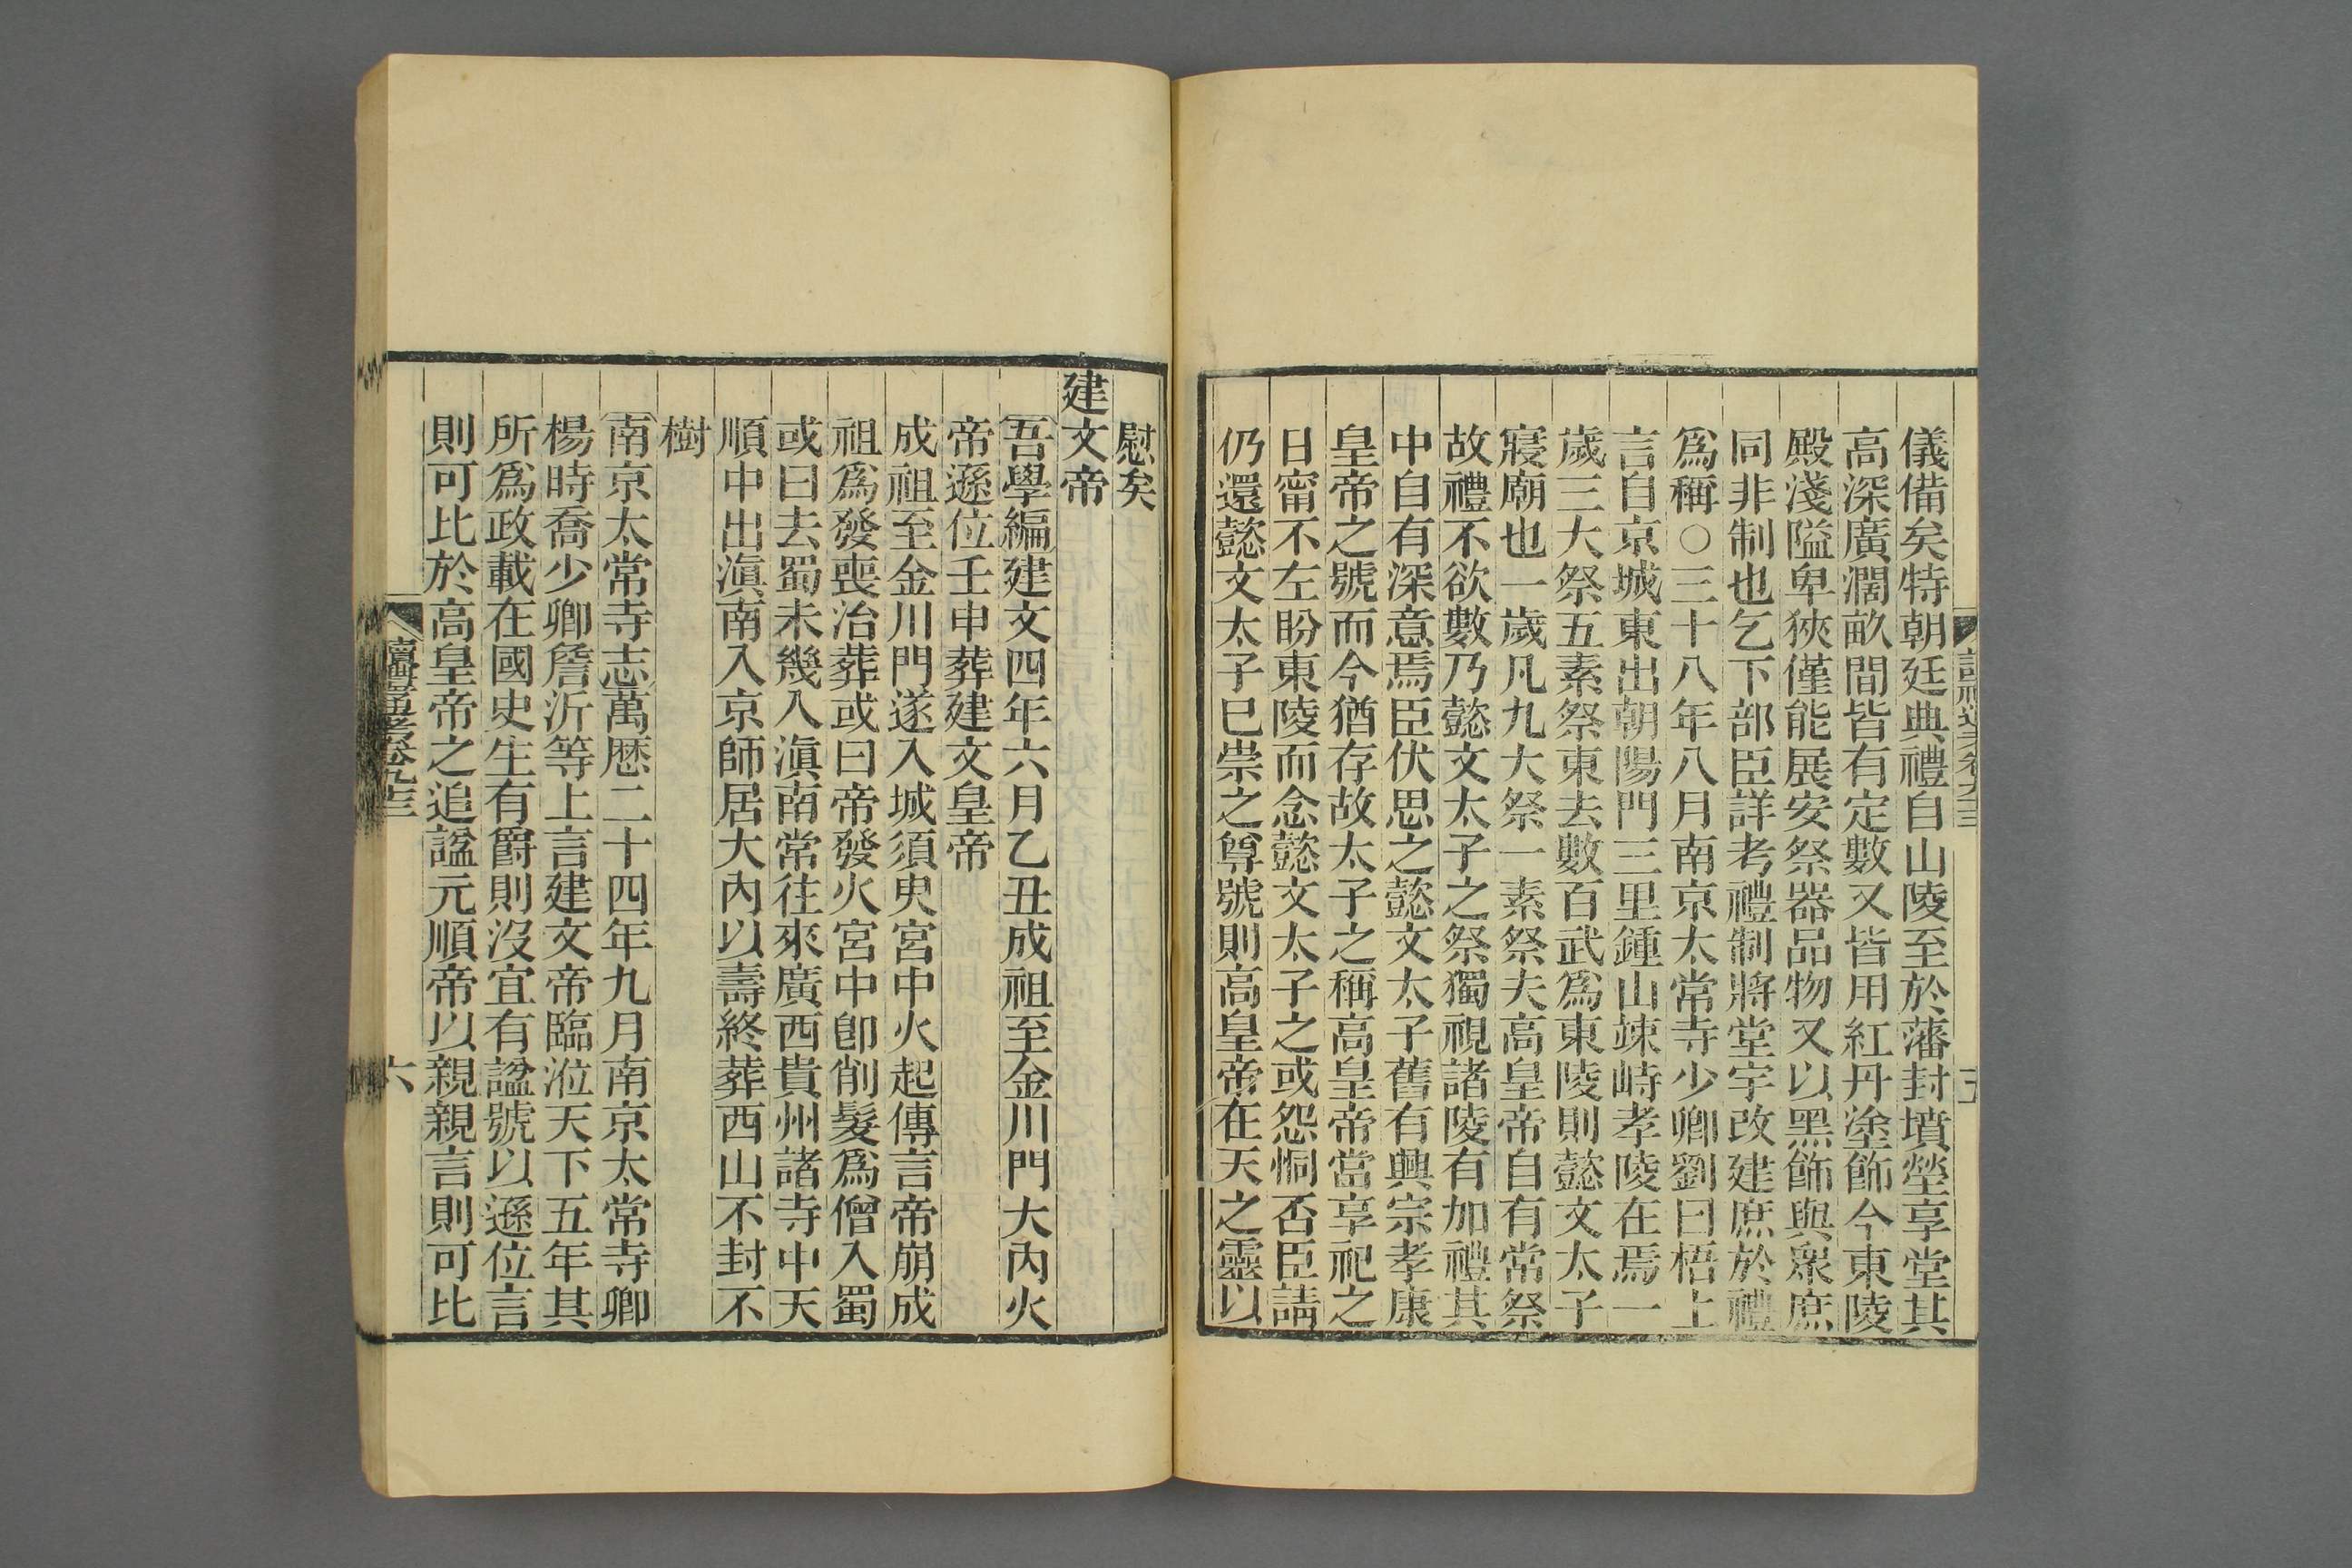 儀備矣特朝廷典禮自山陵至於藩封墳塋享堂其
高深廣濶畝間皆有定數又皆用紅丹塗飾今東陵
殿淺隘卑狹僅能展安祭器品物又以黑飾與衆庶
同非制也乞下部臣詳考禮制將堂宇改建庶於禮
爲稱○三十八年八月南京太常寺少卿劉曰梧上
言自京城東出朝陽門三里鍾山竦峙孝陵在焉一
歲三大祭五素祭東去數百武爲東陵則懿文太子
寢廟也一歲凡九大祭一素祭夫高皇帝自有常祭
故禮不欲數乃懿文太子之祭獨視諸陵有加禮其
中自有深意焉臣伏思之懿文太子舊有興宗孝康
皇帝之號而今猶存故太子之稱高皇帝當享祀之
日甯不左盼東陵而念懿文太子之或怨恫否臣請
仍還懿文太子已崇之尊號則高皇帝在天之靈以
慰矣
建文帝
吾學編建文四年六月乙丑成祖至金川門大內火
帝遜位壬申葬建文皇帝
成祖至金川門遂入城須臾宮中火起傳言帝崩成
祖爲發喪治葬或曰帝發火宮中卽削髮爲僧入蜀
或曰去蜀未幾入滇南常往來廣西貴州諸寺中天
順中出滇南入京師居大內以壽終葬西山不封不
樹
南京太常寺志萬歷二十四年九月南京太常寺卿
楊時喬少卿詹沂等上言建文帝臨涖天下五年其
所爲政載在國史生有爵則沒宜有諡號以遜位言
則可比於高皇帝之追諡元順帝以親親言則可比
六